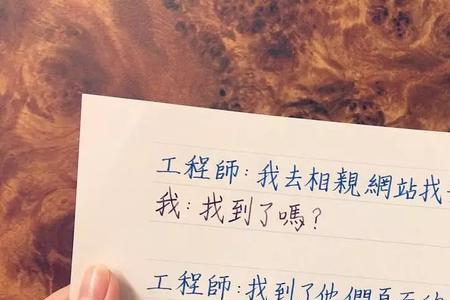 工程師:我去相親網站找
我:找到了嗎?
工程師:找到了他們頁面